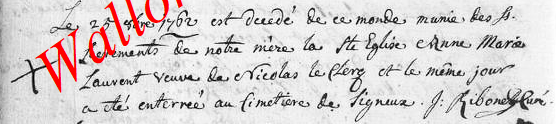 Le 25 9bre 1762 est decedé de ce monde munie des Ss.
Sacrements de notre mère la Ste Eglise Anne Marie
Laurent veuve de Nicolas le Clerq et le même jour
a été enterrée au Cimetiere de Signeux. J: Ribonet Curé.
Wallo